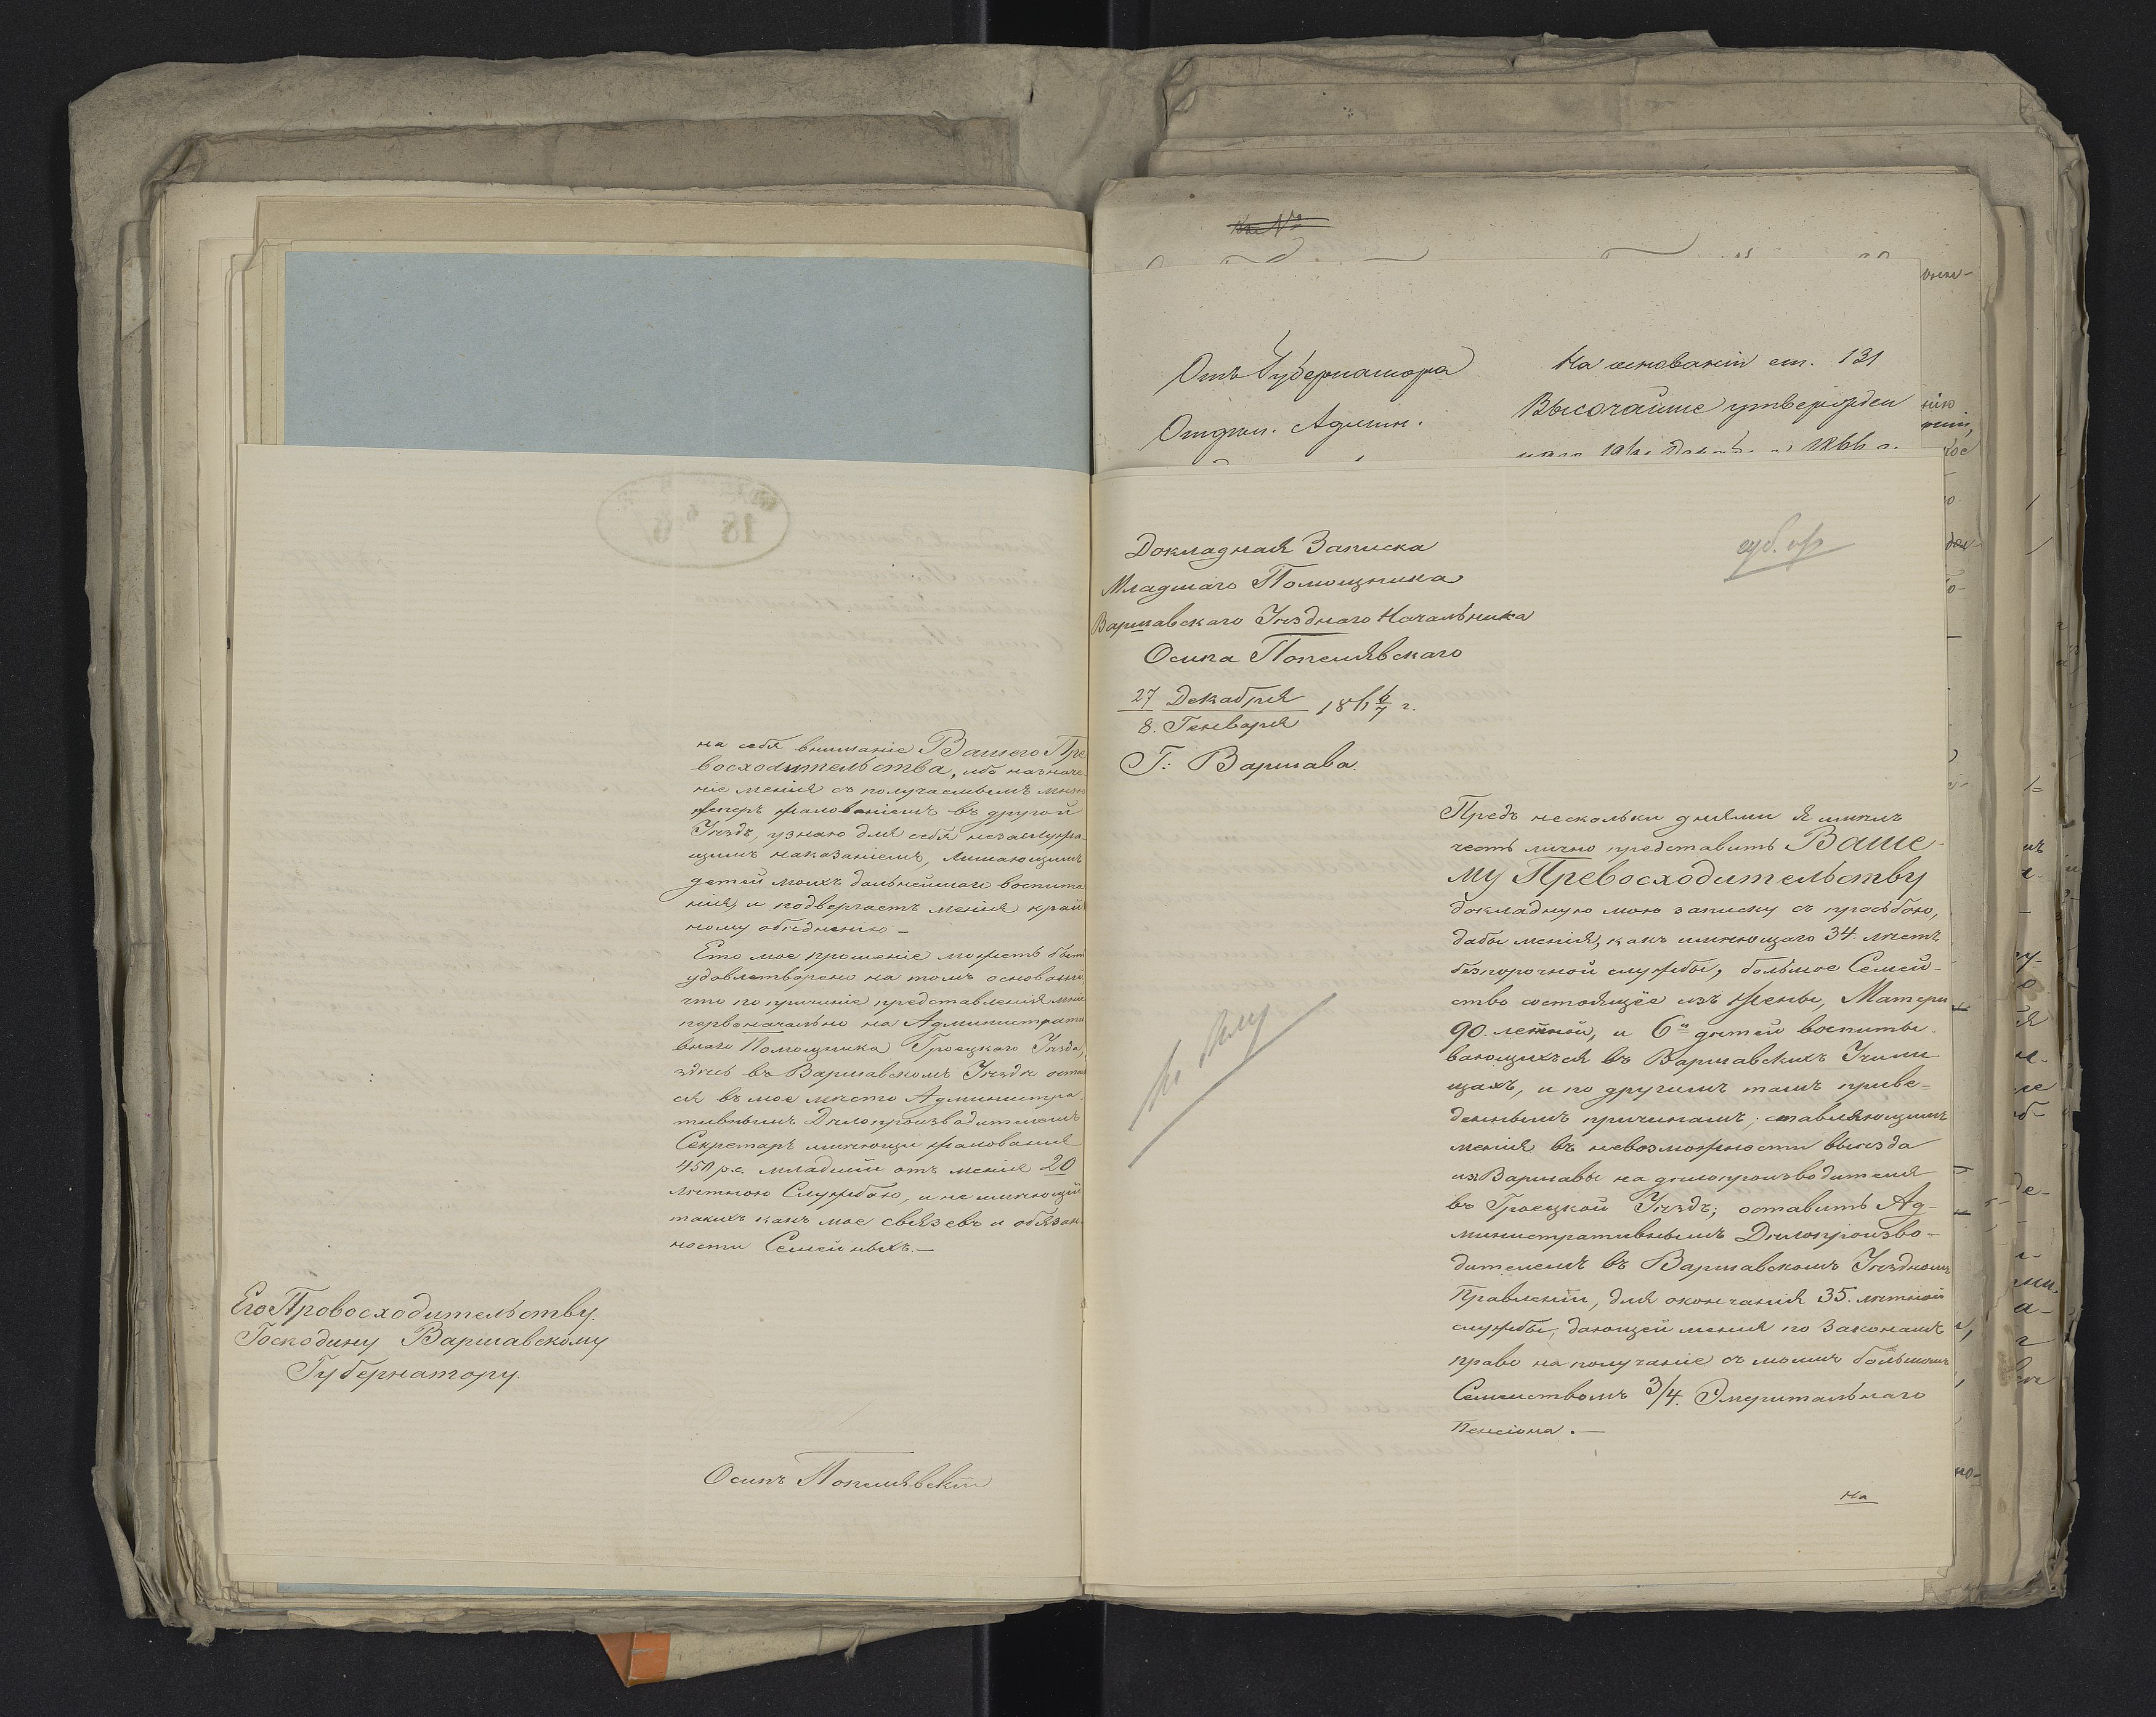 на себя вниманіе Вашего Пре
восходительства, ибо назначе
ніе меня съ получаемымъ мною
теперъ жалованіемъ въ другой
Уѣздъ, узнаю для себя незаслужа-
щимъ наказаніемъ, лишающимъ
детей моихъ дальнейшаго воспита
нія, и подвергаетъ меня край
ному обѣднению —
Ето мое прошеніе можетъ быть
удовлетворено на томъ основаніи,
что по причине представленія мене
первоначально на Администрати
внаго Помощника Гроецкаго Уѣзда,
здѣсь въ Варшавскомъ Уѣзде оста
ся въ мое мѣсто Администра-
тивнымъ Дѣлопроизводителемъ
Секретарь имеющи жалованія
450 р.с. младшій отъ меня 20
лѣтною Службою, и не имеющій
такихъ какъ мое связевъ и обязан-
ности Семейныхъ. —
Его Провосходительству.
Господину Варшавскому
Губернатору.
Осипъ Попелявскій
Отъ Губернатора
Отдѣл. Админ.
На основаніи ст. 131
Высочайше утвержден
1866 г.
Докладная Записка
Младшаго Помощника
Варшавскаго Уѣзднаго Начальника
Осипа Попелявскаго
27 Декабря
8. Генваря 186 6/7 г.
Г: Варшава.
Предъ нескольки днями я имелъ
честь лично представить Ваше-
му Превосходительству
докладную мою записку съ просьбою,
дабы меня, какъ имеющаго 34. лѣтъ
безпорочной службы, большое Семей-
ство состоящее изъ Жены, Матери
90. летной, и 6и дѣтей воспиты-
вающихъся въ Варшавскихъ Учили
щахъ, и по другимъ тамъ приве=
деннымъ причинамъ; ставляющимъ
меня въ невозможности выезда
изъ Варшавы на дѣлопроизводителя
въ Гроецкой Уѣздъ; оставить Ад-
министративнымъ Дѣлопроизво-
дителемъ въ Варшавскомъ Уѣздномъ
Правленіи, для окончанія 35. лѣтней
службы, дающей меня по Законамъ
право на получаніе съ моимъ большимъ
Семиствомъ 3/4. Эмеритальнаго
Пенсіона. —
На